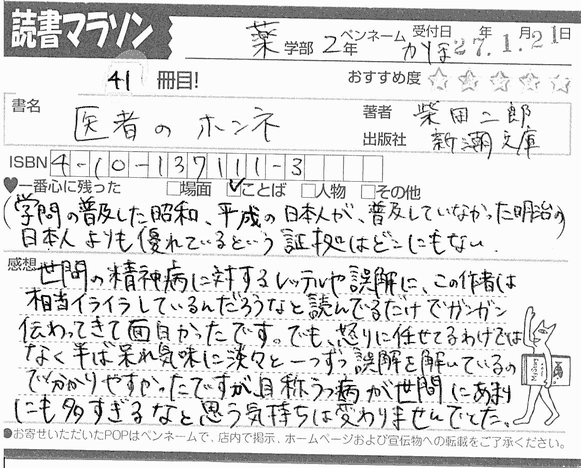 読書マラソン
薬 学部 2年 ペンネーム かりほ 受付日 27年1月21日
41 冊目! おすすめ度 ☆☆☆☆☆
書名 医者のホンネ
著者 柴田二郎
出版社 新潮文庫
ISBN 4-10-137111-3
♥一番心に残った □場面 ☑ことば □人物 □その他
(学問の普及した昭和、平成の日本人が、普及していなかった明治の)
日本人よりも優れているという証拠はどこにもない.
感想 世間の精神病に対するレッテルや誤解に、この作者は
相当イライラしているんだろうなと読んでるだけでガンガン
伝わってきて面白かったです。でも、怒りに任せてるわけでは
なく半ば呆れ気味に淡々と一つずつ誤解を解いているの
で分かりやすかったですが、自称うつ病が世間にあまり
にも多すぎるなと思う気持ちは変わりませんでした。
●お寄せいただいたPOPはペンネームで、店内で掲示、ホームページおよび宣伝物への転載をご了承ください。